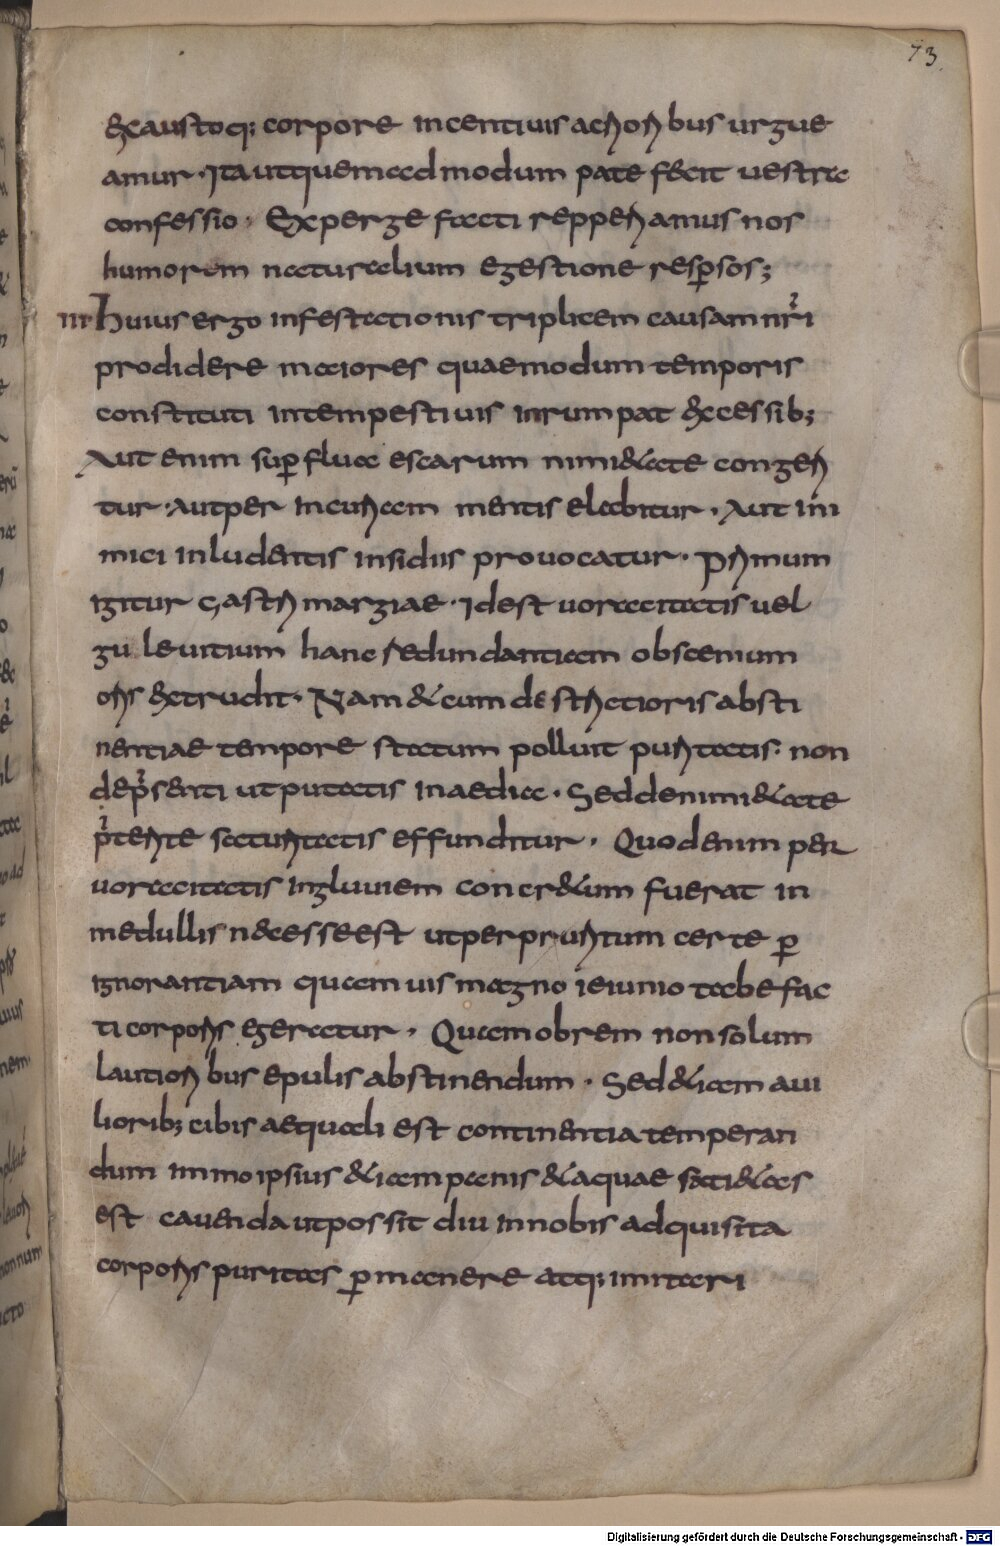 73.
&caustoq; corpore incentiuis acrioribus urgue
amur. Ita utquemadmodum patefecit uestra
confessio. Experge facti repperiamus nos
humorem naturalium egestione respersos;
III Huius ergo infestationis triplicem causam nri
prodidere maiores quaemodum temporis
constituti intempestiuis inrumpat &cessib;
Aut enim superflua escarum nimi&ate congeri
tur. Aut per incuriam mentis elabitur. Aut ini
mici inludentis insidiis prouocatur. Primum
igitur gastrimargiae. Id est uoracitatis uel
gulae uitium hanc redundantiam obscenium
oris &trudit. Nam & cum de strictioris absti
nentiae tempore statum polluit puritatis. non
de psenti ut putatis inaedia. Sed de nimi&ate
pterite saturitatis effunditur. Quod enim per
uoracitatis ingluuiem concr&um fuerat in
medullis necesse est ut per pruritum certe p
ignorantiam quamuis magno ieiunio tabefac
ti corporis egeratur. Quam obrem non solum
lautioribus epulis abstinendum. Sed &iam aui
liorib; cibis aequali est continentia temperan
dum immo ipsius &iam panis & aquae sati&as
est cauenda ut possit diu in nobis adquisita
corporis puritas pmanere atq; imitari
Digitalisierung gefördert durch die Deutsche Forschungsgemeinschaft - DFG